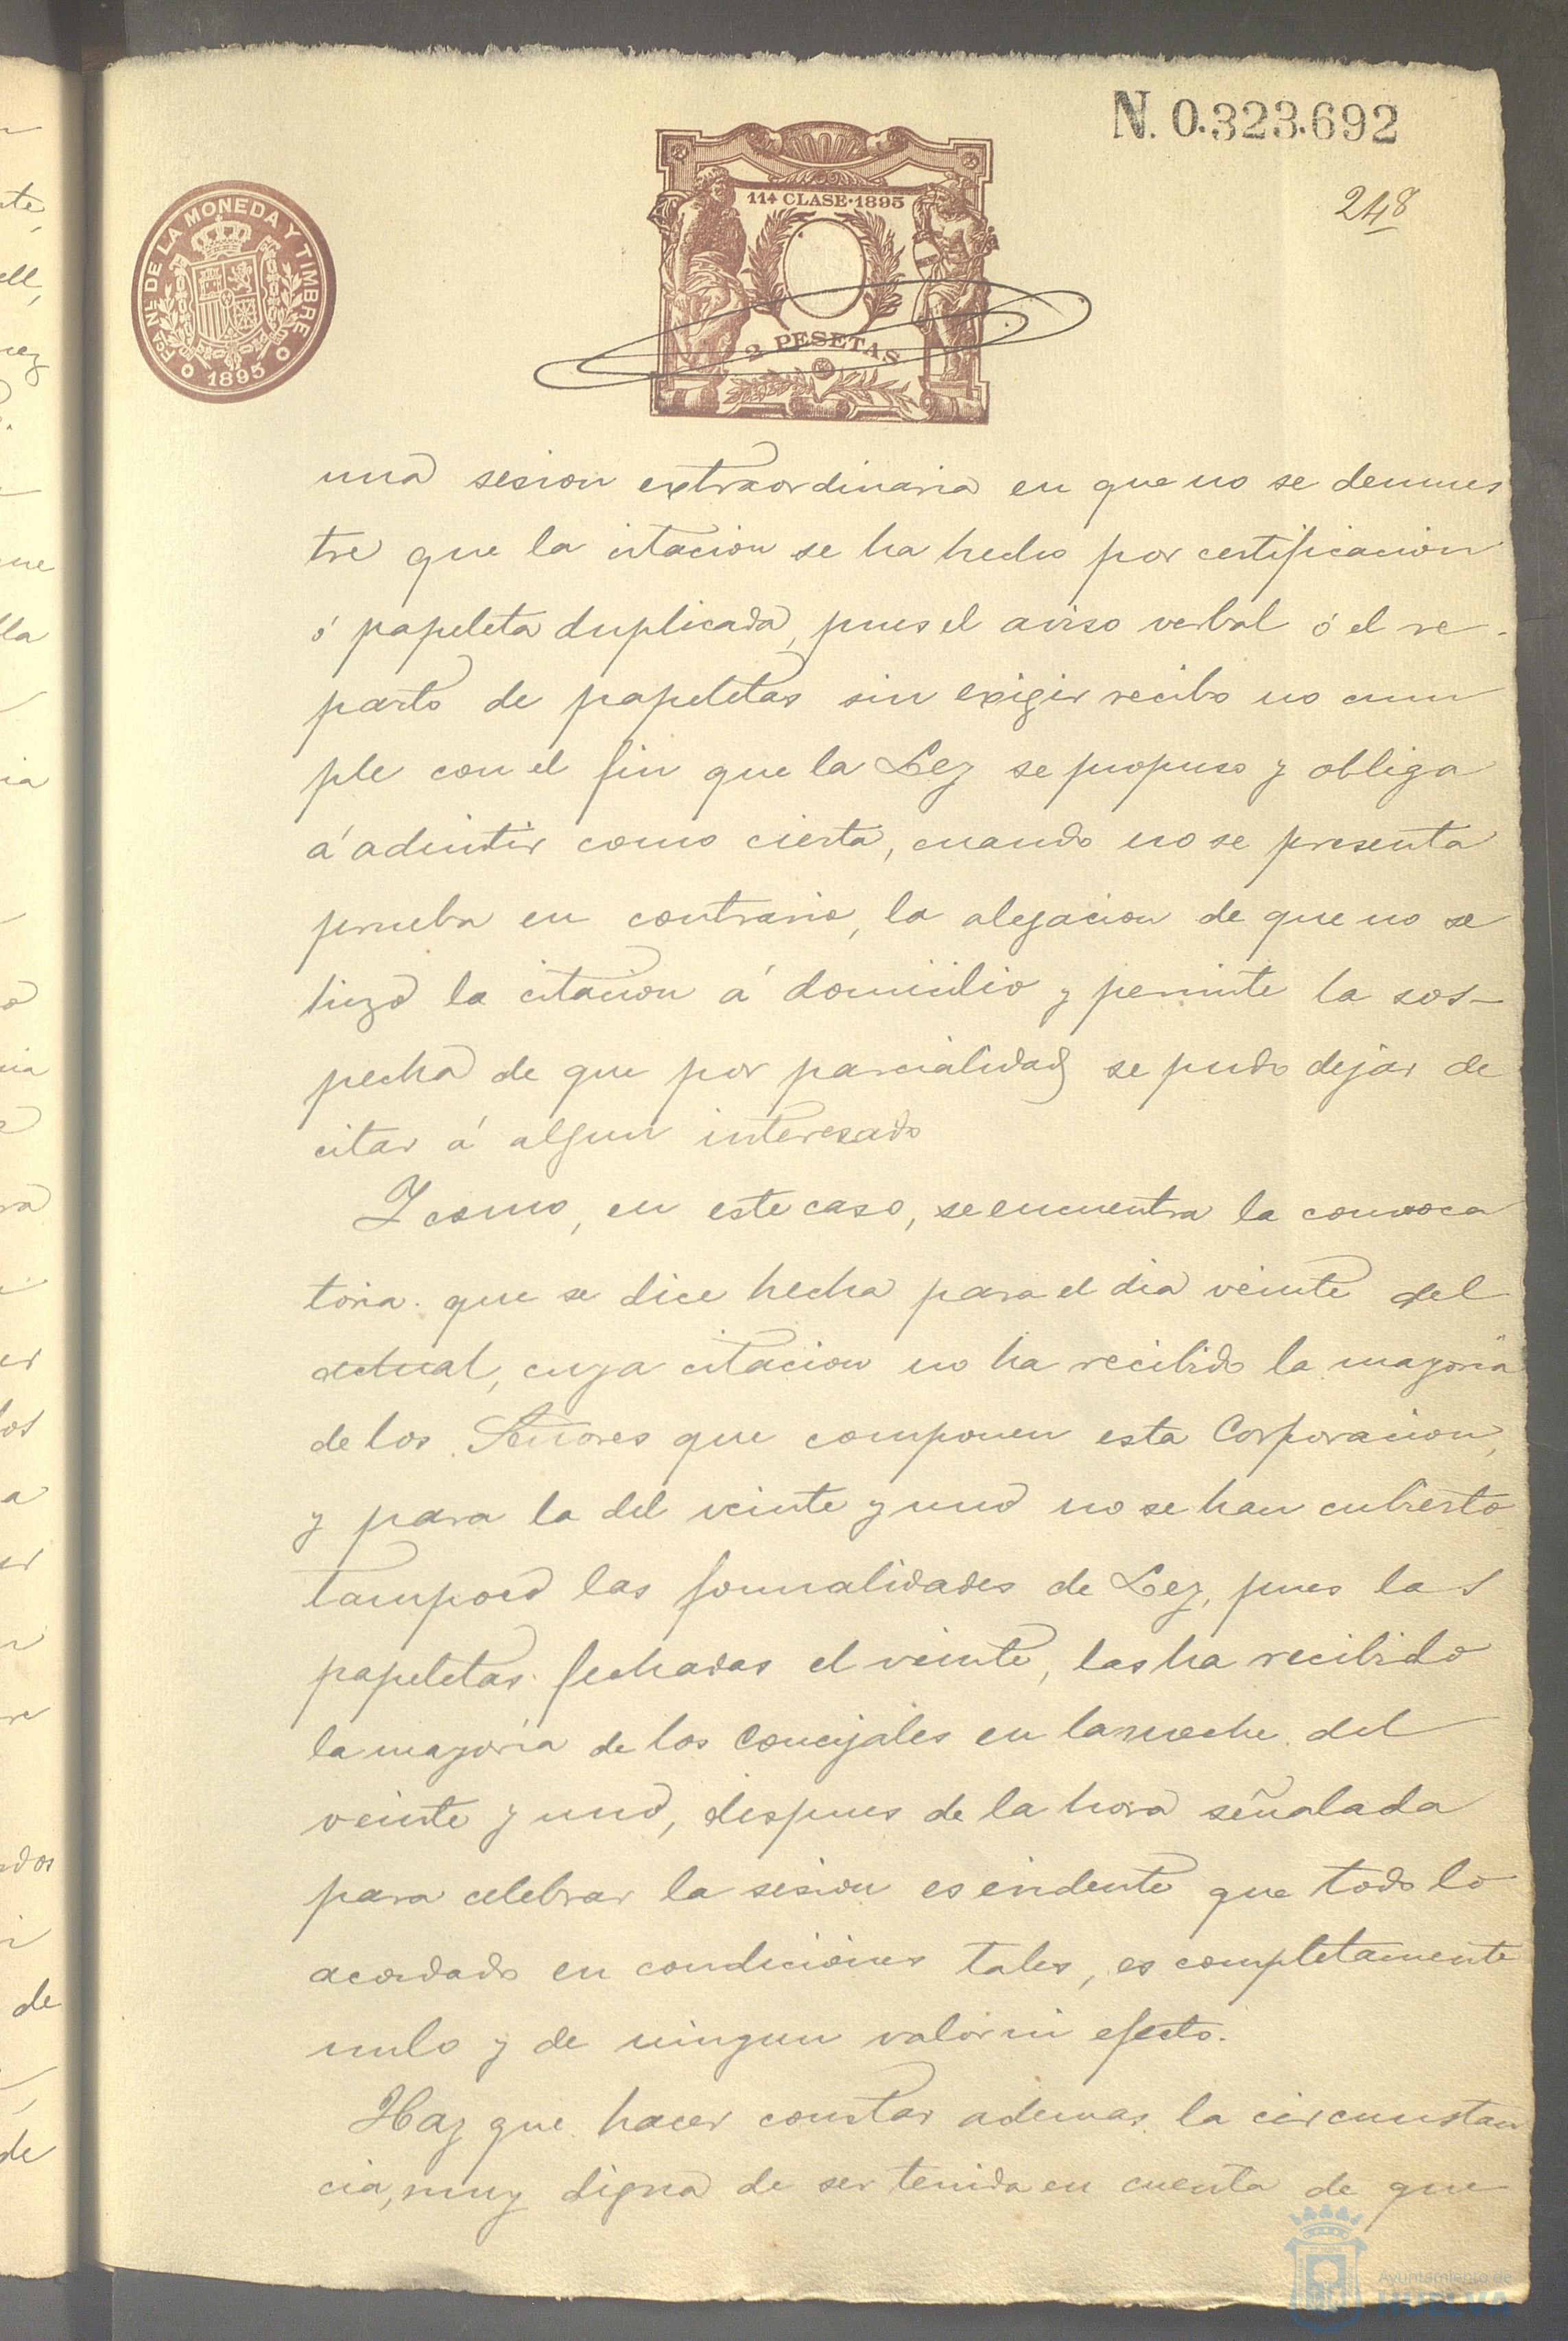 N. 0.323.692
248
FCA NL DE LA MONEDA Y TIMBRE
1895
11ª CLASE·1895
2 PESETAS
una sesion extraordinaria en que no se demues
tre que la citacion se ha hecho por certificacion
ó papeleta duplicada, pues el aviso verbal ó el re-
parto de papeletas sin exigir recibo no cum
ple con el fin que la Ley se propuso y obliga
á admitir como cierta, cuando no se presenta
prueba en contrario, la alegacion de que no se
hizo la citacion á domicilio y permite la sos-
pecha de que por parcialidad se pudo dejar de
citar á algun interesado
Y como, en este caso, se encuentra la convoca
toria que se dice hecha para el dia veinte del
actual, cuya citacion no ha recibido la mayoria
de los Señores que componen esta Corporacion,
y para la del veinte y uno no se han cubierto
tampoco las formalidades de Ley, pues las
papeletas fechadas el veinte, las ha recibido
la mayoría de los Concejales en la noche del
veinte y uno, despues de la hora señalada
para celebrar la sesion es evidente que todo lo
acordado en condiciones tales, es completamente
nulo y de ningun valor ni efecto.
Hay que hacer constar ademas la circunstan
cia, muy digna de ser tenida en cuenta de que
Ayuntamiento de
HUELVA